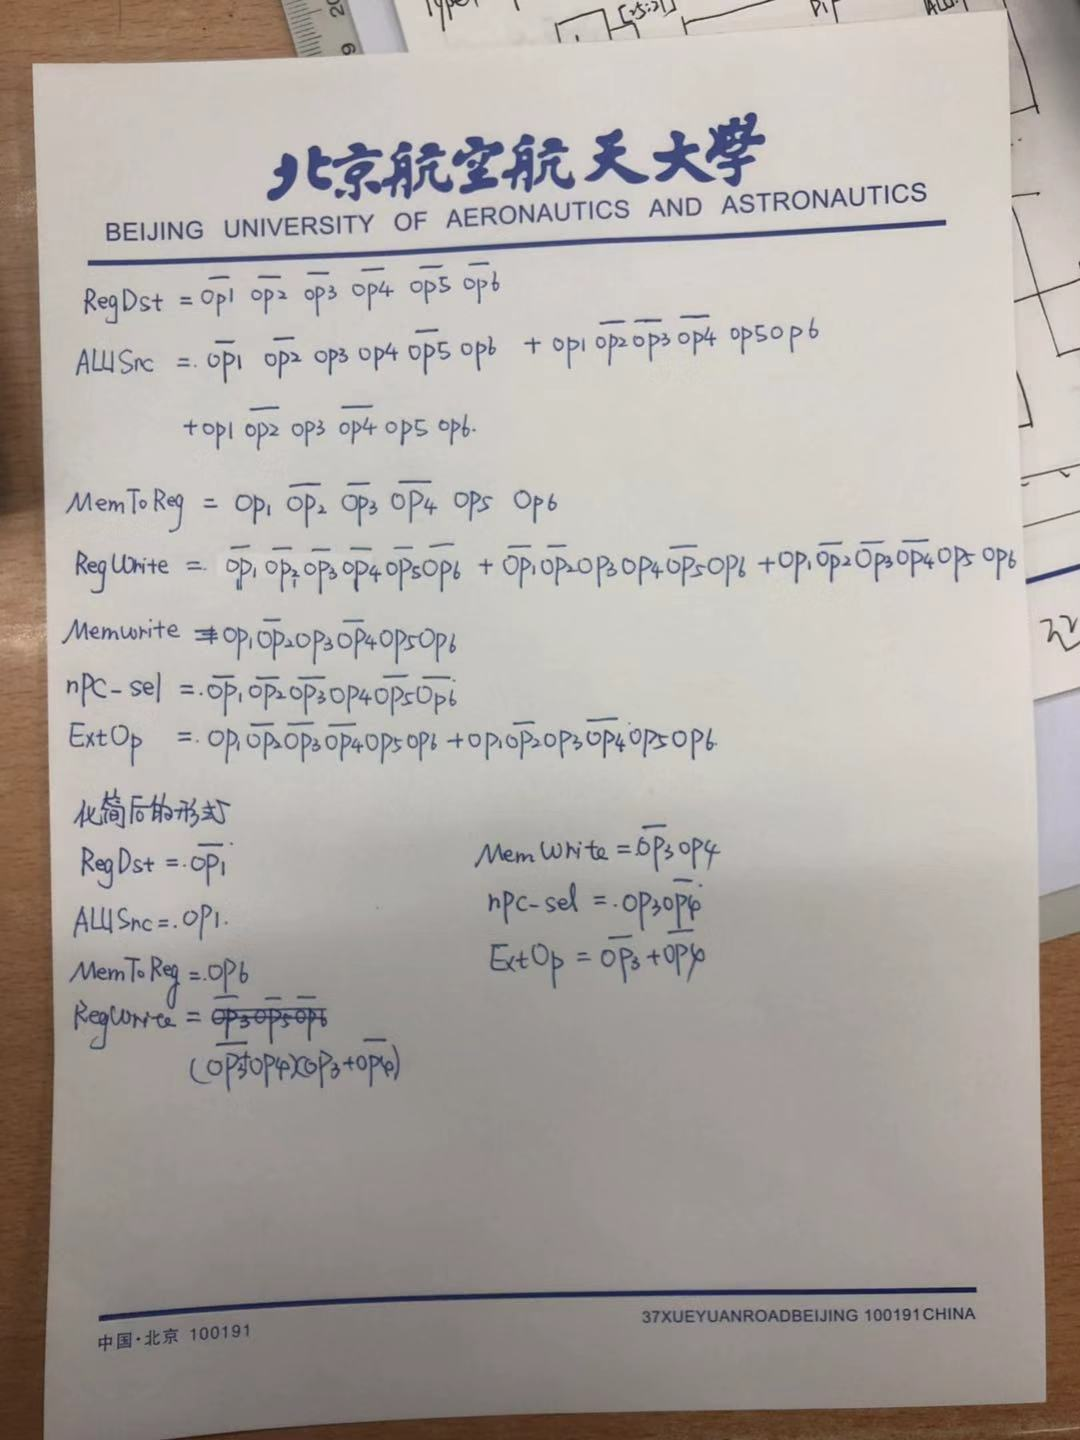 Type
[25:21]
20
19
北京航空航天大學
BEIJING UNIVERSITY OF AERONAUTICS AND ASTRONAUTICS
RegDst = o̅p̅1̅ o̅p̅2̅ o̅p̅3̅ o̅p̅4̅ o̅p̅5̅ o̅p̅6̅
ALUSrc = o̅p̅1̅ o̅p̅2̅ op3 op4 o̅p̅5̅ op6 + op1 o̅p̅2̅ o̅p̅3̅ o̅p̅4̅ op5 op6
+ op1 o̅p̅2̅ op3 o̅p̅4̅ op5 op6.
MemToReg = op1 o̅p̅2̅ o̅p̅3̅ o̅p̅4̅ op5 op6
RegWrite = o̅p̅1̅ o̅p̅2̅ o̅p̅3̅ o̅p̅4̅ o̅p̅5̅ o̅p̅6̅ + o̅p̅1̅ o̅p̅2̅ op3 op4 o̅p̅5̅ op6 + op1 o̅p̅2̅ o̅p̅3̅ o̅p̅4̅ op5 op6
Memwrite = op1 o̅p̅2̅ op3 o̅p̅4̅ op5 op6
nPC-sel = o̅p̅1̅ o̅p̅2̅ o̅p̅3̅ op4 o̅p̅5̅ o̅p̅6̅
ExtOp = op1 o̅p̅2̅ o̅p̅3̅ o̅p̅4̅ op5 op6 + op1 o̅p̅2̅ op3 o̅p̅4̅ op5 op6
化简后的形式
RegDst = o̅p̅1̅
ALUSrc = op1.
MemToReg = op6
RegWrite = o̅p̅3̅ o̅p̅5̅ o̅p̅6̅
(o̅p̅3̅+op4)(op3+o̅p̅4̅)
MemWrite = o̅p̅3̅ op4
nPC-sel = op3 o̅p̅4̅
ExtOp = o̅p̅3̅ + o̅p̅4̅
中国·北京 100191
37XUEYUANROADBEIJING 100191CHINA